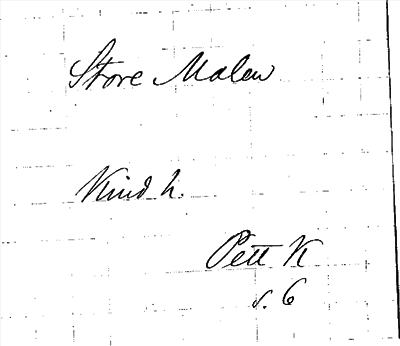 Store Malen
Kind h.
Pett K
s. 6